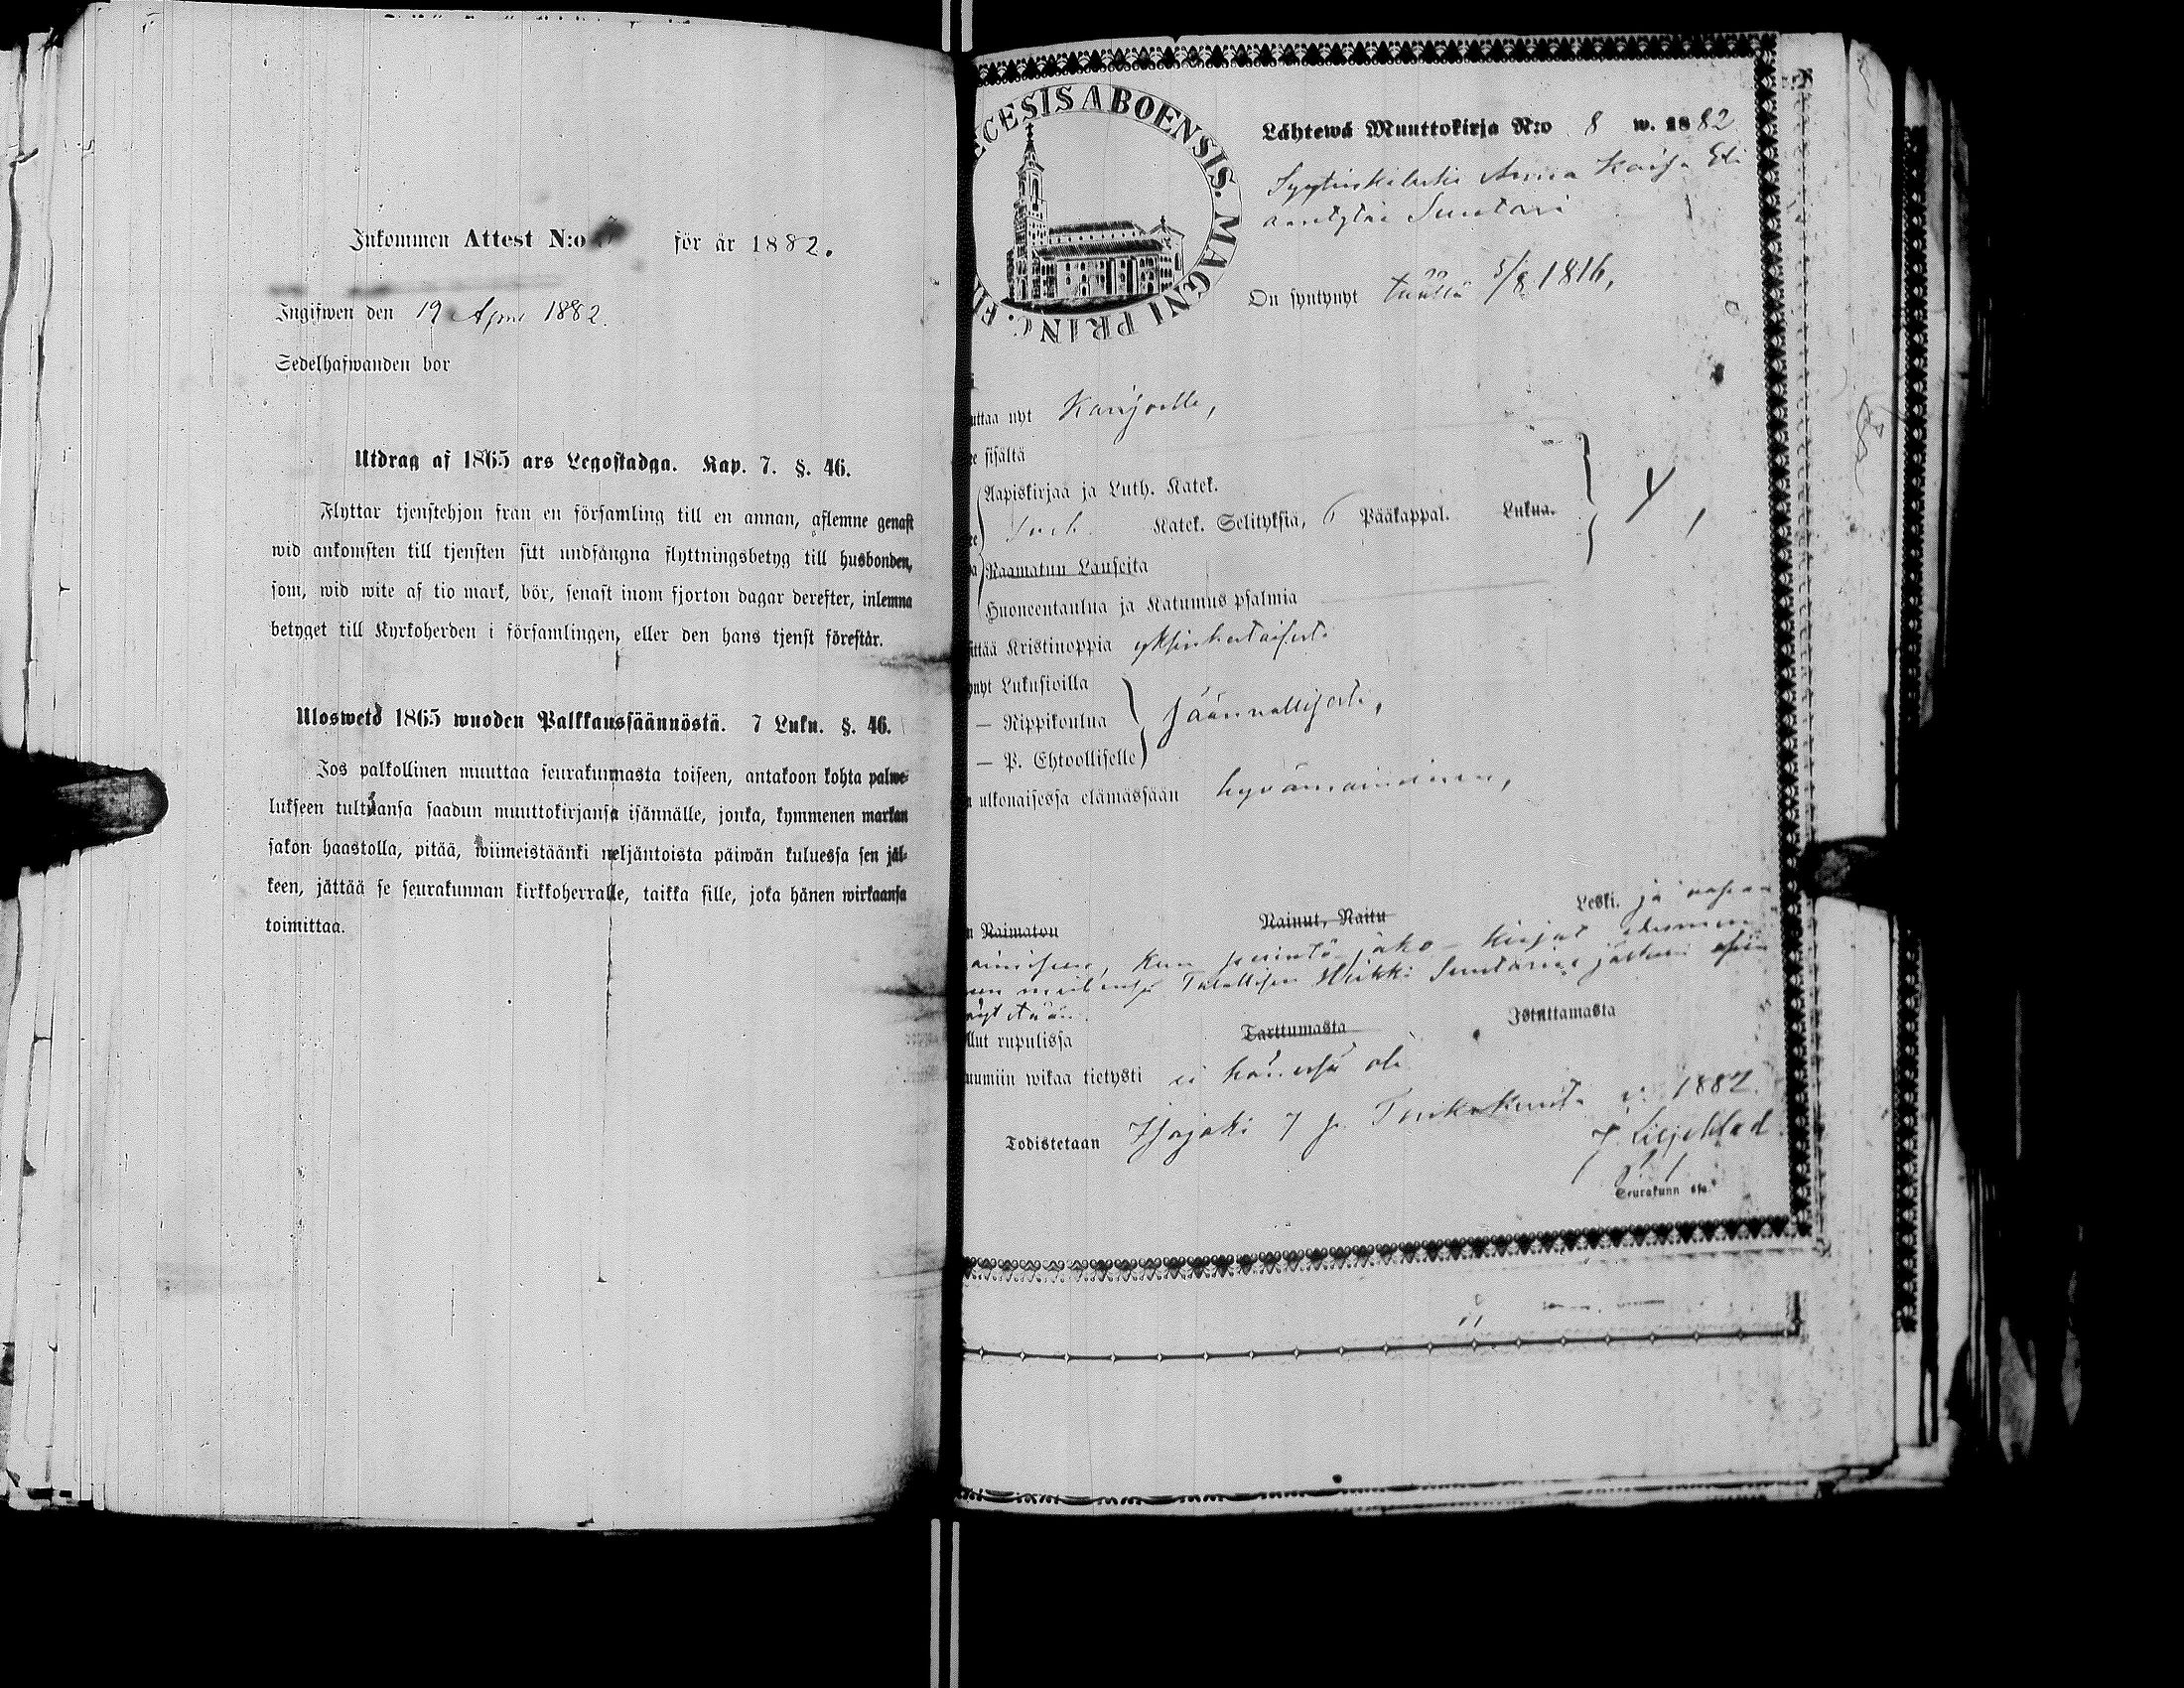 Inkommen Attest N:o för år 1882.
Ingifwen den 19 April 1882.
Sedelhafwanden bor
Utdrag af 1865 ars Legostadga. Kap. 7. §. 46.
Flyttar tjenstehjon från en församling till en annan, aflemne genast
wid ankomsten till tjensten sitt undfångna flyttningsbetyg till husbonden,
som, wid wite af tio mark, bör, senast inom fjorton dagar derefter, inlemna
betyget till Kyrkoherden i församlingen, eller den hans tjenst förestår.
Uloswetö 1865 wuoden Palkkaussäännöstä. 7 Luku. §. 46.
Jos palkollinen muuttaa seurakunnasta toiseen, antakoon kohta palwe-
lukseen tultuansa saadun muuttokirjansa isännälle, jonka, kymmenen markan
sakon haastolla, pitää, wiimeistäänki neljäntoista päiwän kuluessa sen jäl-
keen, jättää se seurakunnan kirkkoherralle, taikka sille, joka hänen wirkaansa
toimittaa.
ECESIS ABOENSIS. MAGNI PRINC. FI
Lähtewä Muuttokirja N:o 8 w. 1882
Syytinkileski Anna Kaisa
Suutari
On syntynyt täällä 5/8 1816,
uttaa nyt Karijoelle,
ee sisältä
Aapiskirjaa ja Luth. Katek.
Katek. Selityksiä, 6 Pääkappal. Lukua.
Raamatun Lauseita
Huoneentaulua ja Katumus psalmia
ittää Kristinoppia yksinkertaisesti
ynyt Lukusioilla
— Rippikoulua säännöllisesti,
— P. Ehtoolliselle
n ulkonaisessa elämässään hyvämaineinen,
n Naimaton Nainut, Naitu Leski. ja vapaa
kun perintö-jako-kirjat
Talollisen Heikki Suutarin jälkeen
llut rupulissa Tarttumasta Istuttamasta
uumiin wikaa tietysti ei hänessä ole
Todistetaan Isojoki 7 p. Toukokuuta v. 1882.
J. Liljeblad
Seurakunn